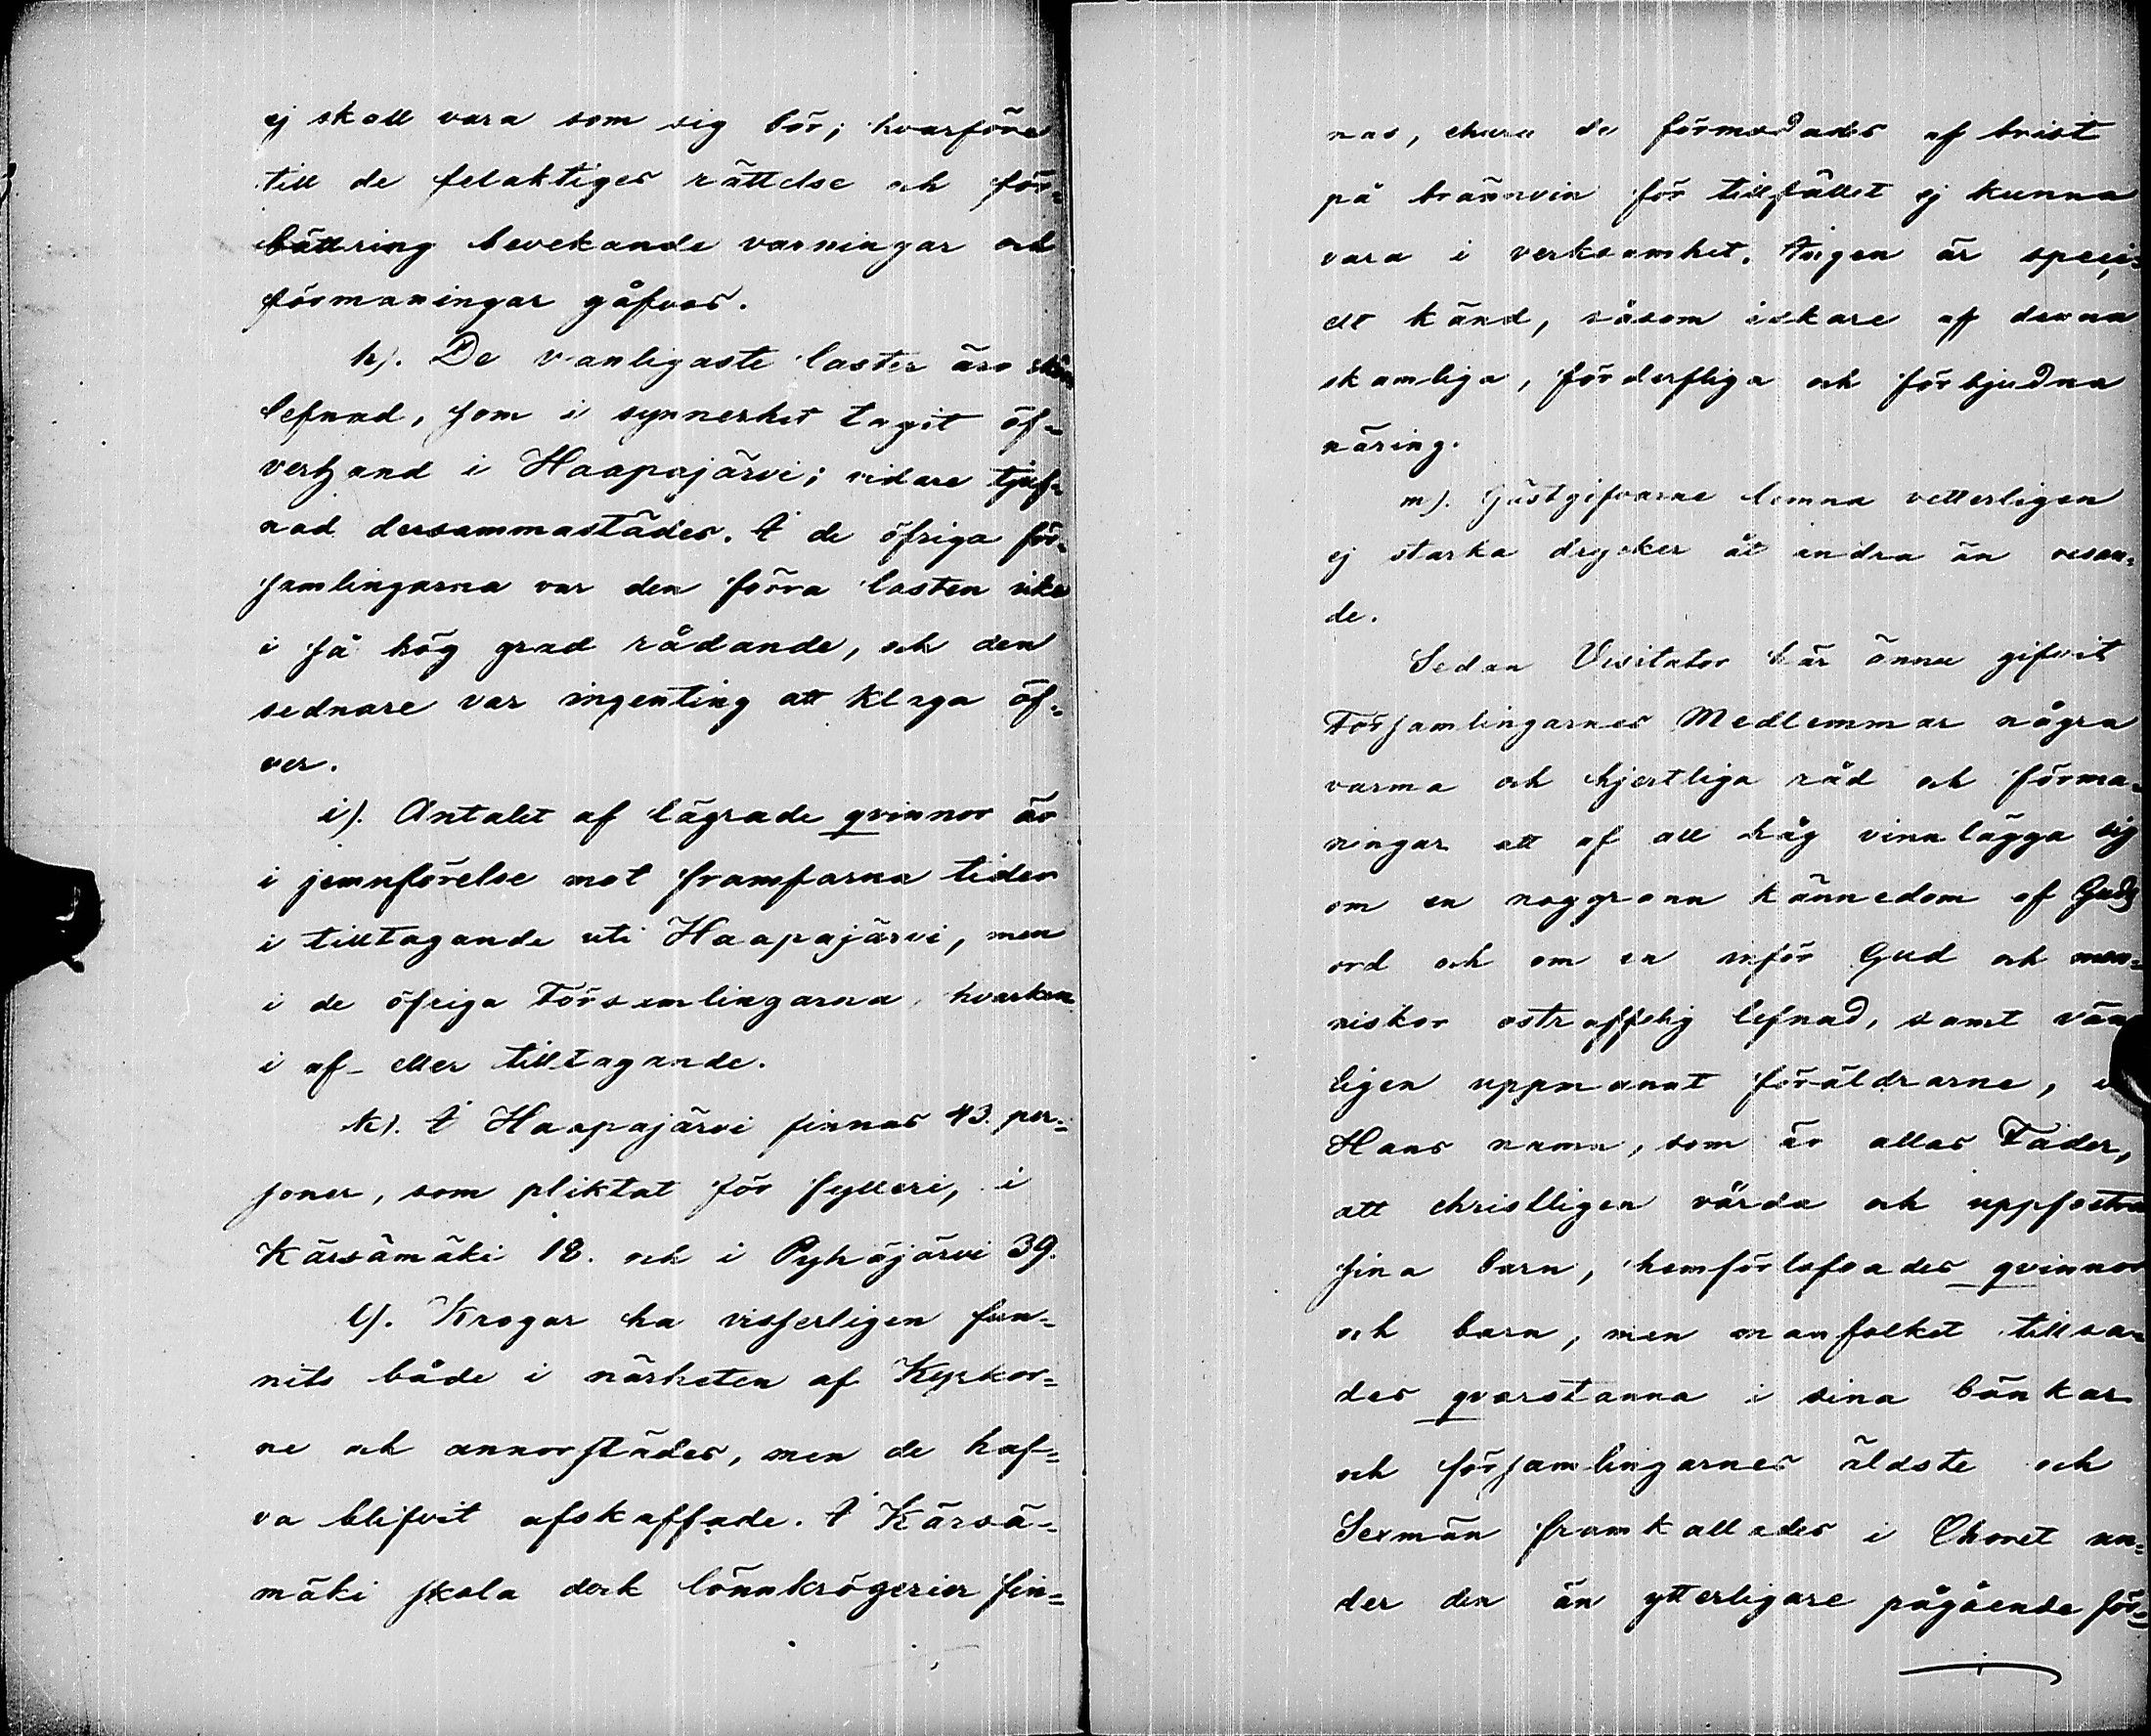 ej skall vara som sig bör; hvarföre
till de felaktiges rättelse och för=
bättring bevekande varningar och
förmaningar gåfvos.
h). De vanligaste laster äro skör
lefnad, som i synnerhet tagit öf=
verhand i Haapajärvi; vidare tjuf=
nad dersammastädes. I de öfriga för=
samlingarna var den förra lasten icke
i så hög grad rådande, och den
sednare var ingenting att klaga öf=
ver.
i). Antalet af lägrade qvinnor är
i jemnförelse mot framfarna tider
i tilltagande uti Haapajärvi, men
i de öfriga Församlingarna hvarken
i af- eller tilltagande.
k). I Haapajärvi finnas 43. per=
soner, som pliktat för fylleri, i
Kärsämäki 18. och i Pyhäjärvi 39.
l). Krogar ha visserligen fun=
nits både i närheten af Kyrkor=
ne och annorstädes, men de haf=
va blifvit afskaffade. I Kärsä=
mäki skola dock lönnkrögerier fin=
nas, ehuru de förmodades af brist
på brännvin för tillfället ej kunna
vara i verksamhet. Ingen är speci=
elt känd, såsom idkare af denna
skamliga, förderfliga och förbjudna
näring.
m). Gästgifvarne lemna vetterligen
ej starka drycker åt andra än resan=
de.
Sedan Visitator här ännu gifvit
Församlingarnes Medlemmar några
varma och hjertliga råd och förma=
ningar att af all håg vinnlägga sig
om en noggrann kännedom af Guds
ord och om en inför Gud och men=
niskor ostrafflig lefnad, samt vän
ligen uppmanat föräldrarne, i
Hans namn, som är allas Fader,
att christligen vårda och uppfostra
sina barn, hemförlofvades qvinnor
och barn, men manfolket tillsa=
des qvarstanna i sina bänkar
och församlingarnes äldste och
Sexmän framkallades i Choret un=
der den än ytterligare pågående för=